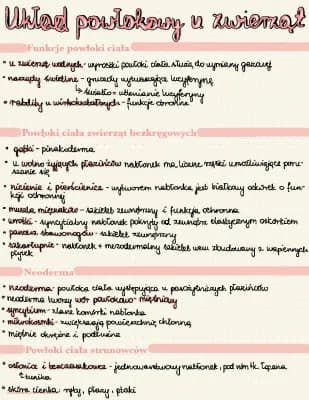 Układ powłokowy u zwierząt
Funkcje powłoki ciała
• u zwierząt wodnych - wyrostki powłoki ciała służą do wymiany gazowej
• narządy świetlne - gruczoły wytwarzające lucyferynę
↳ światło = utlenianie lucyferyny
• rabdity u wirkokształtnych - funkcje obronne
Powłoki ciała zwierząt bezkręgowych
• gąbki - pinakoderma
• u wolno żyjących płazińców nabłonek ma liczne rzęski umożliwiające poru-
szanie się
• nicienie i pierścienice - wytworem nabłonka jest białkowy oskórek o fun-
kcji ochronnej
• muszla mięczaków - szkielet zewnętrzny i funkcja ochronna
• wrotki - syncytialny nabłonek pokryty od zewnątrz elastycznym oskórkiem
• pancerz stawonogów - szkielet zewnętrzny
• szkarłupnie - nabłonek + mezodermalny szkielet wew. zbudowany z wapiennych
płytek
Neoderma
• neoderma: powłoka ciała występująca u pasożytniczych płazińców
• neoderma tworzy wór powłokowo-mięśniowy
• syncytium - zlane komórki nabłonka
• mikrokosmki - zwiększają powierzchnię chłonną
• mięśnie okrężne i podłużne
Powłoki ciała strunowców
• osłonice i bezczaszkowce - jednowarstwowy nabłonek, pod nim tk. łączna
↳ tunika
• skóra cienka: ryby, płazy, ptaki